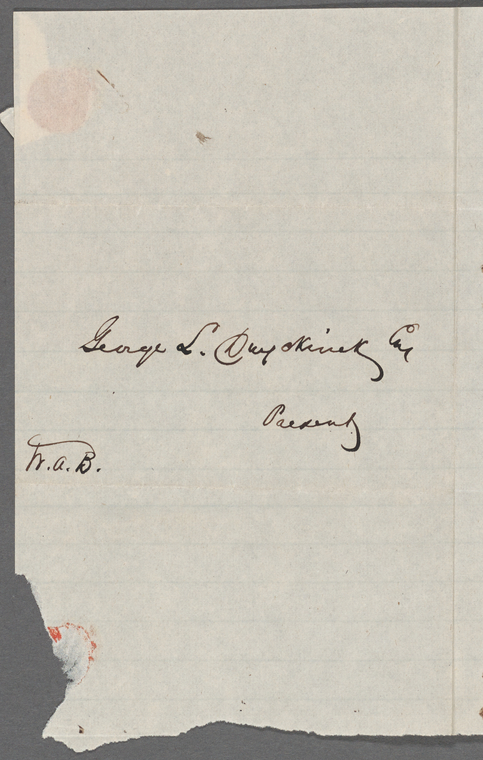 George L. Duyckinck Esq
Present
W.A.B.